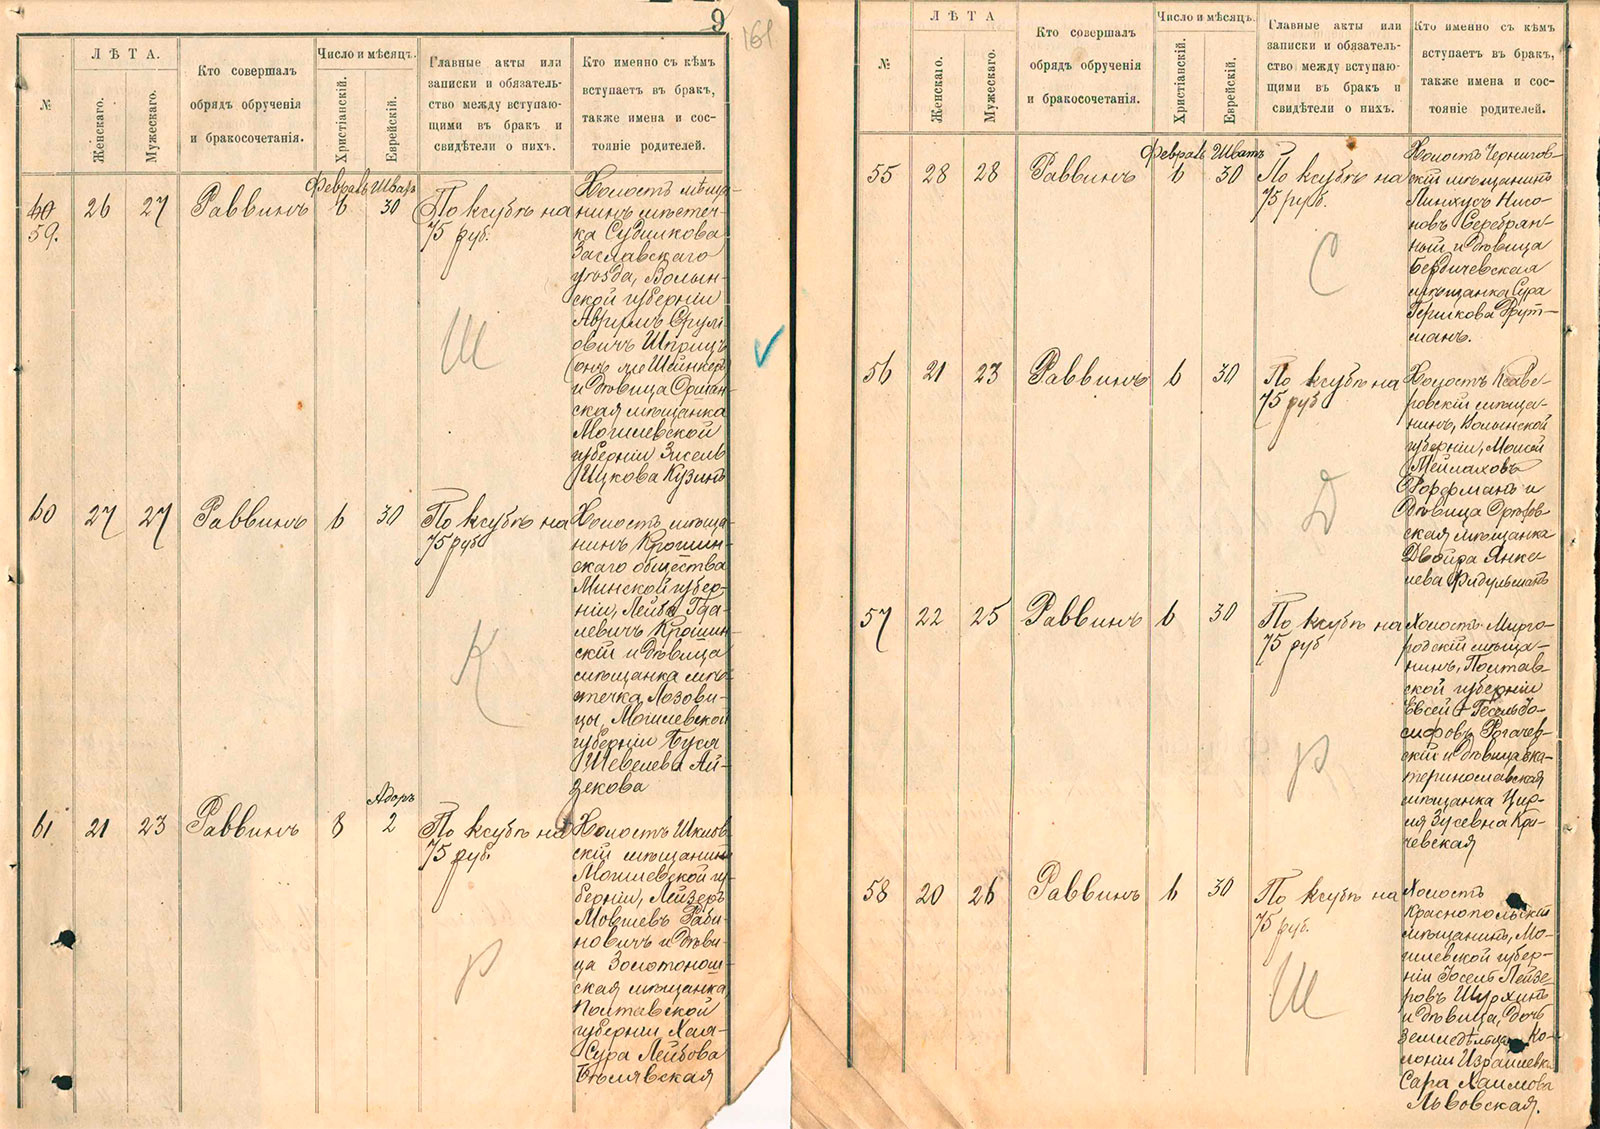 9
161
№
ЛѢТА.
Женскаго.
Мужескаго.
Кто совершалъ
обрядъ обрученія
и бракосочетанія.
Число и мѣсяцъ.
Христіанскій.
Еврейскій.
Главные акты или
записки и обязатель-
ство между вступаю-
щими въ бракъ и
свидѣтели о нихъ.
Кто именно съ кѣмъ
вступаетъ въ бракъ,
также имена и сос-
тояніе родителей.
60
59.
26
27
Раввинъ
Февраль
6
Шватъ
30
По ксубѣ на
75 руб.
Ш
Холостъ мѣща-
нинъ мѣстеч-
ка Судилкова
Заславскаго
уѣзда, Волын-
ской губерніи
Аврумъ Срули-
овичъ Шприцъ
(онъ же Шейнкер)
и дѣвица Оршан-
ская мѣщанка
Могилевской
губерніи Зисель
Ицкова Кузинъ
60
27
27
Раввинъ
6
30
По ксубѣ на
75 руб
К
Холостъ мѣща-
нинъ Крошин-
скаго общества
Минской губер-
ніи, Лейба Гда-
левичъ Крошин-
скій и дѣвица
мѣщанка мѣс-
течка Лозови-
цы, Могилевской
губерніи Буся
Шевелева Ай-
зекова
61
21
23
Раввинъ
8
Адоръ
2
По ксубѣ на
75 руб.
Р
Холостъ Шклов-
скій мѣщанинъ
Могилевской гу-
берніи, Лейзеръ
Мовшевъ Раби-
новичъ и дѣви-
ца Золотонош-
ская мѣщанка
Полтавской
губерніи Хая-
Сура Лейбова
Бѣлявская
№
ЛѢТА
Женскаго.
Мужескаго.
Кто совершалъ
обрядъ обрученія
и бракосочетанія.
Число и мѣсяцъ.
Христіанскій.
Еврейскій.
Главные акты или
записки и обязатель-
ство между вступаю-
щими въ бракъ и
свидѣтели о нихъ.
Кто именно съ кѣмъ
вступаетъ въ бракъ,
также имена и сос-
тояніе родителей.
55
28
28
Раввинъ
Февраль
6
Шватъ
30
По ксубѣ на
75 руб.
С
Холостъ Чернигов-
скій мѣщанинъ
Пинхусъ Нисо-
новъ Серебрян-
ный и дѣвица
Бердичевская
мѣщанка Сура
Гершкова Фрут-
манъ.
56
21
23
Раввинъ
6
30
По ксубѣ на
75 руб
Д
Холостъ Ксаве-
ровскій мѣща-
нинъ, Волынской
губерніи, Моисей
Мейлаховъ
и
дѣвица
ская мѣщанка
Двойра Янке-
лева
57
22
25
Раввинъ
6
30
По ксубѣ на
75 руб
Р
Холостъ Мирго-
родскій мѣща-
нинъ, Полтав-
ской губерніи
Евсей-Гесель Іо-
сифовъ Рогачев-
скій и дѣвица Ека-
теринославская
мѣщанка Цир-
ля Зусевна Кра-
чевская
58
20
26
Раввинъ
6
30
По ксубѣ на
75 руб.
Ш
Холостъ
Краснопольскій
мѣщанинъ, Мо-
гилевской губер-
ніи Іосель Лейзе-
ровъ Шурхинъ
и дѣвица, дочь
земледѣльца Ко-
лоніи Израилевка
Сара Хаимова
Львовская.